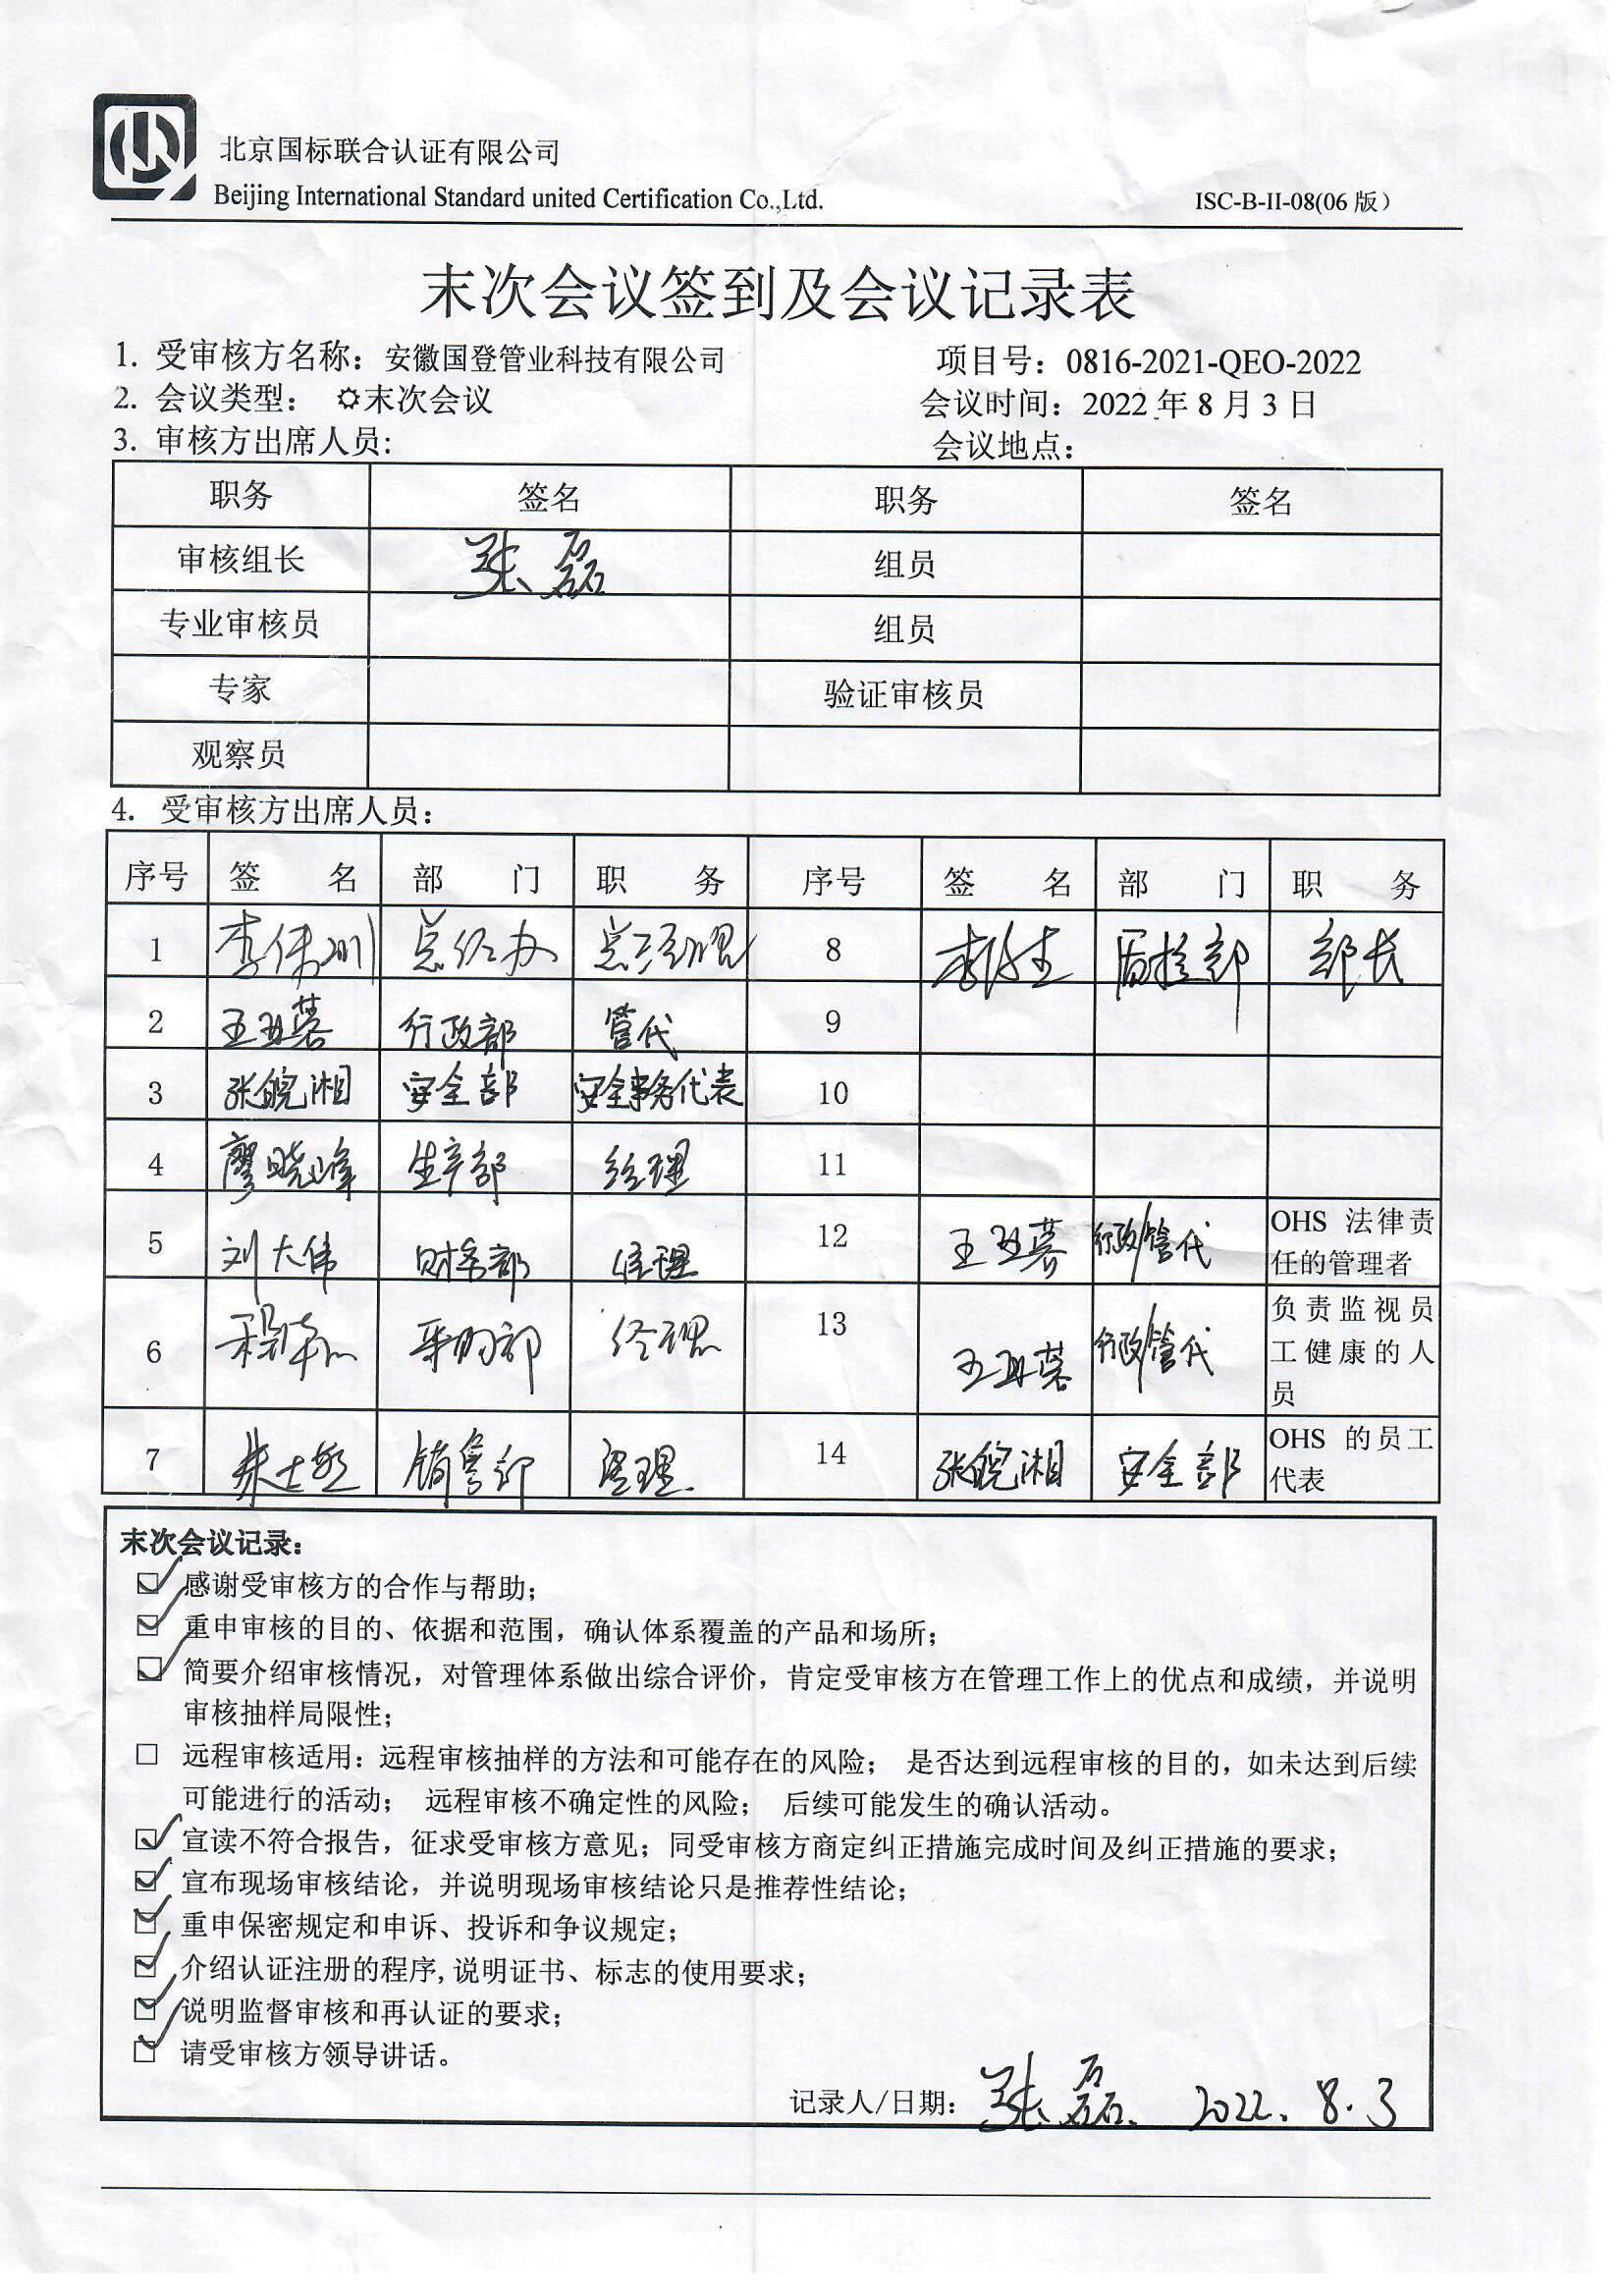 北京国标联合认证有限公司
Beijing International Standard united Certification Co.,Ltd.
ISC-B-II-08(06 版)
末次会议签到及会议记录表
1. 受审核方名称：安徽国登管业科技有限公司 项目号：0816-2021-QEO-2022
2. 会议类型： 末次会议 会议时间：2022 年 8 月 3 日
3. 审核方出席人员: 会议地点：
职务 签名 职务 签名
审核组长 张磊 组员
专业审核员 组员
专家 验证审核员
观察员
4. 受审核方出席人员：
序号 签 名 部 门 职 务 序号 签 名 部 门 职 务
1 总经办 总经理 8 质检部 部长
2 行政部 管代 9
3 张皖湘 安全部 安全事务代表 10
4 廖晓峰 生产部 经理 11
5 刘大伟 财务部 经理 12 行政/管代 OHS 法律责
任的管理者
6 采购部 经理 13 行政/管代 负责监视员
工健康的人
员
7 销售部 经理 14 张皖湘 安全部 OHS 的员工
代表
末次会议记录：
感谢受审核方的合作与帮助；
重申审核的目的、依据和范围，确认体系覆盖的产品和场所；
简要介绍审核情况，对管理体系做出综合评价，肯定受审核方在管理工作上的优点和成绩，并说明
审核抽样局限性；
远程审核适用：远程审核抽样的方法和可能存在的风险； 是否达到远程审核的目的，如未达到后续
可能进行的活动； 远程审核不确定性的风险； 后续可能发生的确认活动。
宣读不符合报告，征求受审核方意见；同受审核方商定纠正措施完成时间及纠正措施的要求；
宣布现场审核结论，并说明现场审核结论只是推荐性结论；
重申保密规定和申诉、投诉和争议规定；
介绍认证注册的程序,说明证书、标志的使用要求；
说明监督审核和再认证的要求；
请受审核方领导讲话。
记录人/日期： 张磊. 2022. 8. 3